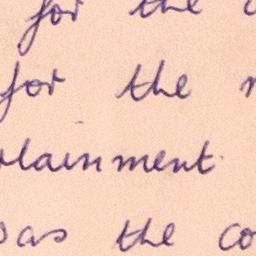 for the
for the
lainment
as the co